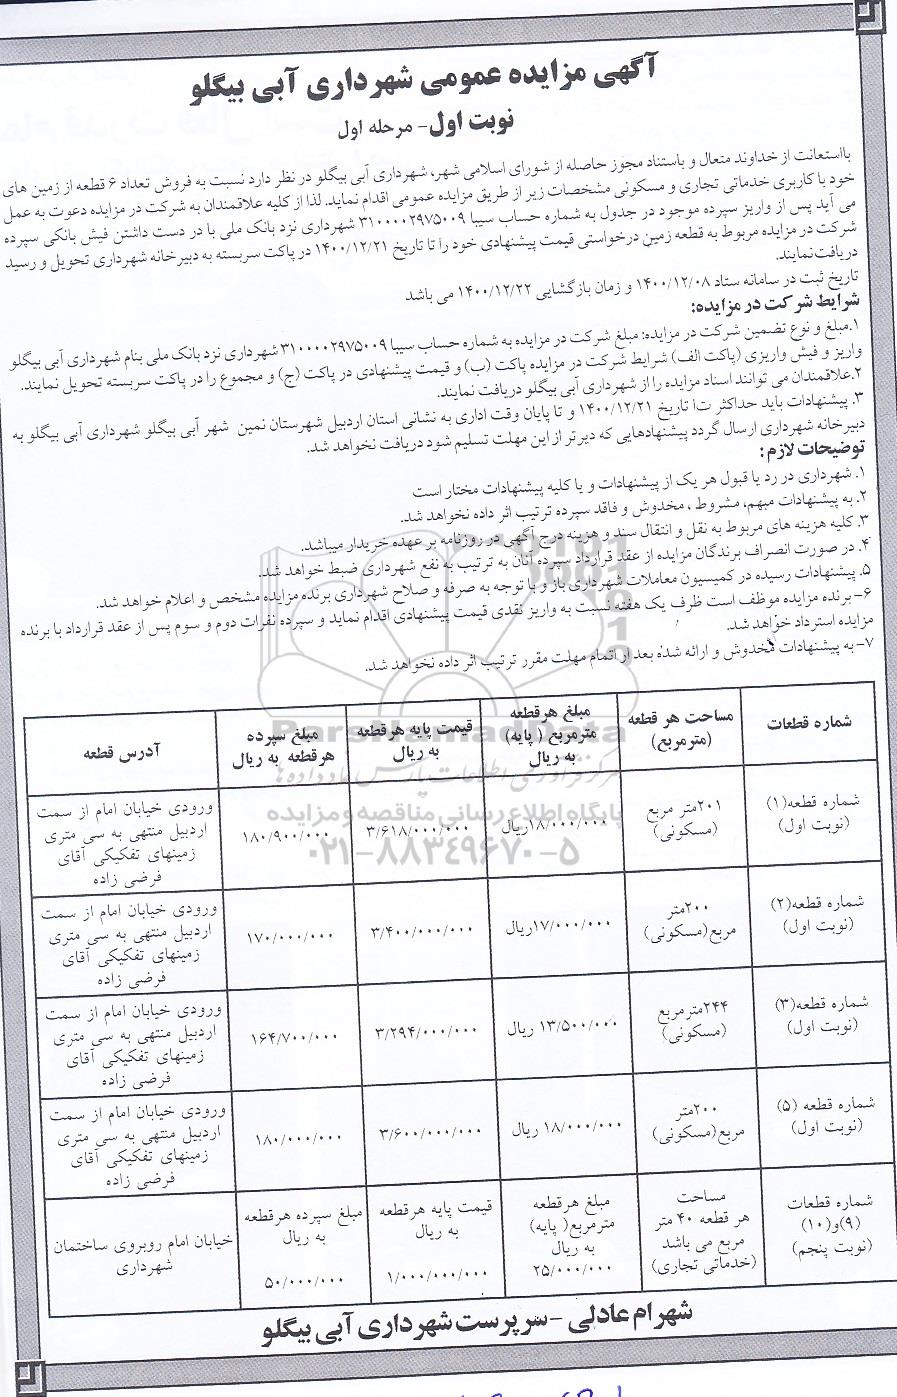 آگهی مزایده عمومی شهرداری آبی بیگلو
نوبت اول- مرحله اول
بااستعانت از خداوند متعال و باستناد مجوز حاصله از شورای اسلامی شهر، شهرداری آبی بیگلو در نظر دارد نسبت به فروش تعداد ۶ قطعه از زمین های
خود با کاربری خدماتی تجاری و مسکونی مشخصات زیر از طریق مزایده عمومی اقدام نماید. لذا از کلیه علاقمندان به شرکت در مزایده دعوت به عمل
می آید پس از واریز سپرده موجود در جدول به شماره حساب سیبا ۳۱۰۰۰۰۲۹۷۵۰۰۹ شهرداری نزد بانک ملی با در دست داشتن فیش بانکی سپرده
شرکت در مزایده مربوط به قطعه زمین درخواستی قیمت پیشنهادی خود را تا تاریخ ۱۴۰۰/۱۲/۲۱ در پاکت سربسته به دبیرخانه شهرداری تحویل و رسید
دریافت نمایند.
تاریخ ثبت در سامانه ستاد ۱۴۰۰/۱۲/۰۸ و زمان بازگشایی ۱۴۰۰/۱۲/۲۲ می باشد
شرایط شرکت در مزایده:
۱.مبلغ و نوع تضمین شرکت در مزایده: مبلغ شرکت در مزایده به شماره حساب سیبا ۳۱۰۰۰۰۲۹۷۵۰۰۹ شهرداری نزد بانک ملی بنام شهرداری آبی بیگلو
واریز و فیش واریزی (پاکت الف) شرایط شرکت در مزایده پاکت (ب) و قیمت پیشنهادی در پاکت (ج) و مجموع را در پاکت سربسته تحویل نمایند.
۲.علاقمندان می توانند اسناد مزایده را از شهرداری آبی بیگلو دریافت نمایند.
۳. پیشنهادات باید حداکثر تا تاریخ ۱۴۰۰/۱۲/۲۱ و تا پایان وقت اداری به نشانی استان اردبیل شهرستان نمین شهر آبی بیگلو شهرداری آبی بیگلو به
دبیرخانه شهرداری ارسال گردد پیشنهادهایی که دیرتر از این مهلت تسلیم شود دریافت نخواهد شد.
توضیحات لازم:
۱. شهرداری در رد یا قبول هر یک از پیشنهادات و یا کلیه پیشنهادات مختار است
۲. به پیشنهادات مبهم، مشروط ، مخدوش و فاقد سپرده ترتیب اثر داده نخواهد شد.
۳. کلیه هزینه های مربوط به نقل و انتقال سند و هزینه درج آگهی در روزنامه بر عهده خریدار میباشد.
۴. در صورت انصراف برندگان مزایده از عقد قرارداد سپرده آنان به ترتیب به نفع شهرداری ضبط خواهد شد.
۵. پیشنهادات رسیده در کمیسیون معاملات شهرداری باز و با توجه به صرفه و صلاح شهرداری برنده مزایده مشخص و اعلام خواهد شد.
۶- برنده مزایده موظف است ظرف یک هفته نسبت به واریز نقدی قیمت پیشنهادی اقدام نماید و سپرده نفرات دوم و سوم پس از عقد قرارداد با برنده
مزایده استرداد خواهد شد.
۷- به پیشنهادات مخدوش و ارائه شده بعد از اتمام مهلت مقرر ترتیب اثر داده نخواهد شد.
شماره قطعات
مساحت هر قطعه
(مترمربع)
مبلغ هرقطعه
مترمربع ( پایه)
به ریال
قیمت پایه هرقطعه
به ریال
مبلغ سپرده
هرقطعه به ریال
آدرس قطعه
شماره قطعه(۱)
(نوبت اول)
۲۰۱متر مربع
(مسکونی)
۱۸/۰۰۰/۰۰۰ریال
۳/۶۱۸/۰۰۰/۰۰۰
۱۸۰/۹۰۰/۰۰۰
ورودی خیابان امام از سمت
اردبیل منتهی به سی متری
زمینهای تفکیکی آقای
فرضی زاده
شماره قطعه(۲)
(نوبت اول)
۲۰۰متر
مربع(مسکونی)
۱۷/۰۰۰/۰۰۰ریال
۳/۴۰۰/۰۰۰/۰۰۰
۱۷۰/۰۰۰/۰۰۰
ورودی خیابان امام از سمت
اردبیل منتهی به سی متری
زمینهای تفکیکی آقای
فرضی زاده
شماره قطعه(۳)
(نوبت اول)
۲۴۴مترمربع
(مسکونی)
۱۳/۵۰۰/۰۰۰ ریال
۳/۲۹۴/۰۰۰/۰۰۰
۱۶۴/۷۰۰/۰۰۰
ورودی خیابان امام از سمت
اردبیل منتهی به سی متری
زمینهای تفکیکی آقای
فرضی زاده
شماره قطعه (۵)
(نوبت اول)
۲۰۰متر
مربع(مسکونی)
۱۸/۰۰۰/۰۰۰ ریال
۳/۶۰۰/۰۰۰/۰۰۰
۱۸۰/۰۰۰/۰۰۰
ورودی خیابان امام از سمت
اردبیل منتهی به سی متری
زمینهای تفکیکی آقای
فرضی زاده
شماره قطعات
(۹)و(۱۰)
(نوبت پنجم)
مساحت
هر قطعه ۴۰ متر
مربع می باشد
(خدماتی تجاری)
مبلغ هرقطعه
مترمربع( پایه)
به ریال
۲۵/۰۰۰/۰۰۰
قیمت پایه هرقطعه
به ریال
۱/۰۰۰/۰۰۰/۰۰۰
مبلغ سپرده هرقطعه
به ریال
۵۰/۰۰۰/۰۰۰
خیابان امام روبروی ساختمان
شهرداری
شهرام عادلی -سرپرست شهرداری آبی بیگلو
ParsNamadData
مرکز فرآوری اطلاعات پارس نماد داده ها
پایگاه اطلاع رسانی مناقصه و مزایده
۰۲۱-۸۸۳۴۹۶۷۰-۵